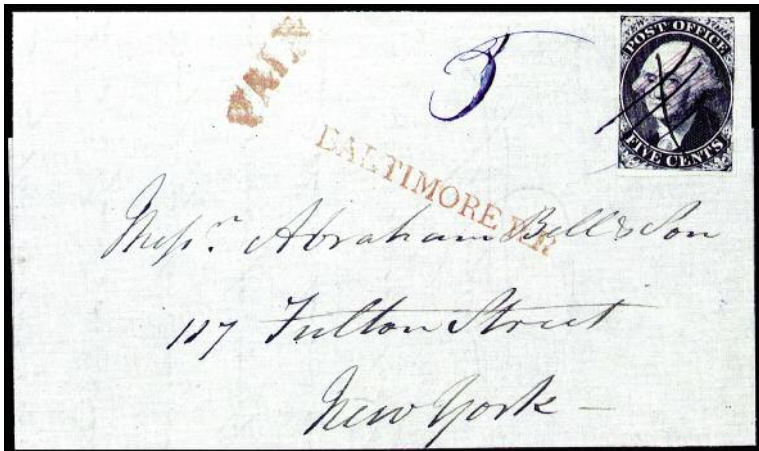 PAID
5
NEW YORK
POST OFFICE
FIVE CENTS
BALTIMORE R.R
Messrs. Abraham Bell & Son
117 Fulton Street
New York —